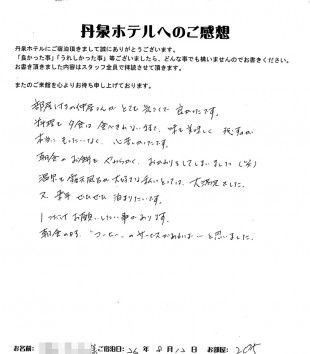 丹泉ホテルへのご感想
丹泉ホテルにご宿泊頂きまして誠にありがとうございます。
「良かった事」「うれしかった事」等ございましたら、どんな事でも構いませんのでお書きください。
お書き頂きました内容はスタッフ全員で拝読させて頂きます。
またのご来館を心よりお待ち申し上げております。
部屋付きの仲居さんがとても良くて良かったです。
料理も夕食は食べきれない程で、味も美味しく 残すのが
本当にもったいなく、心苦しかったです。
朝食のお粥もやわらかく、おかわりをしてしまいました(笑)
温泉も露天風呂の大好きな私にとっては、大満足でした。
又、来年 ぜひぜひ 泊まりたいです。
1つだけお願いしたい事があります。
朝食の時、"コーヒー"のサービスがあれば…と思いました。
お名前: ご宿泊日: 26年 8月12日 お部屋: 205